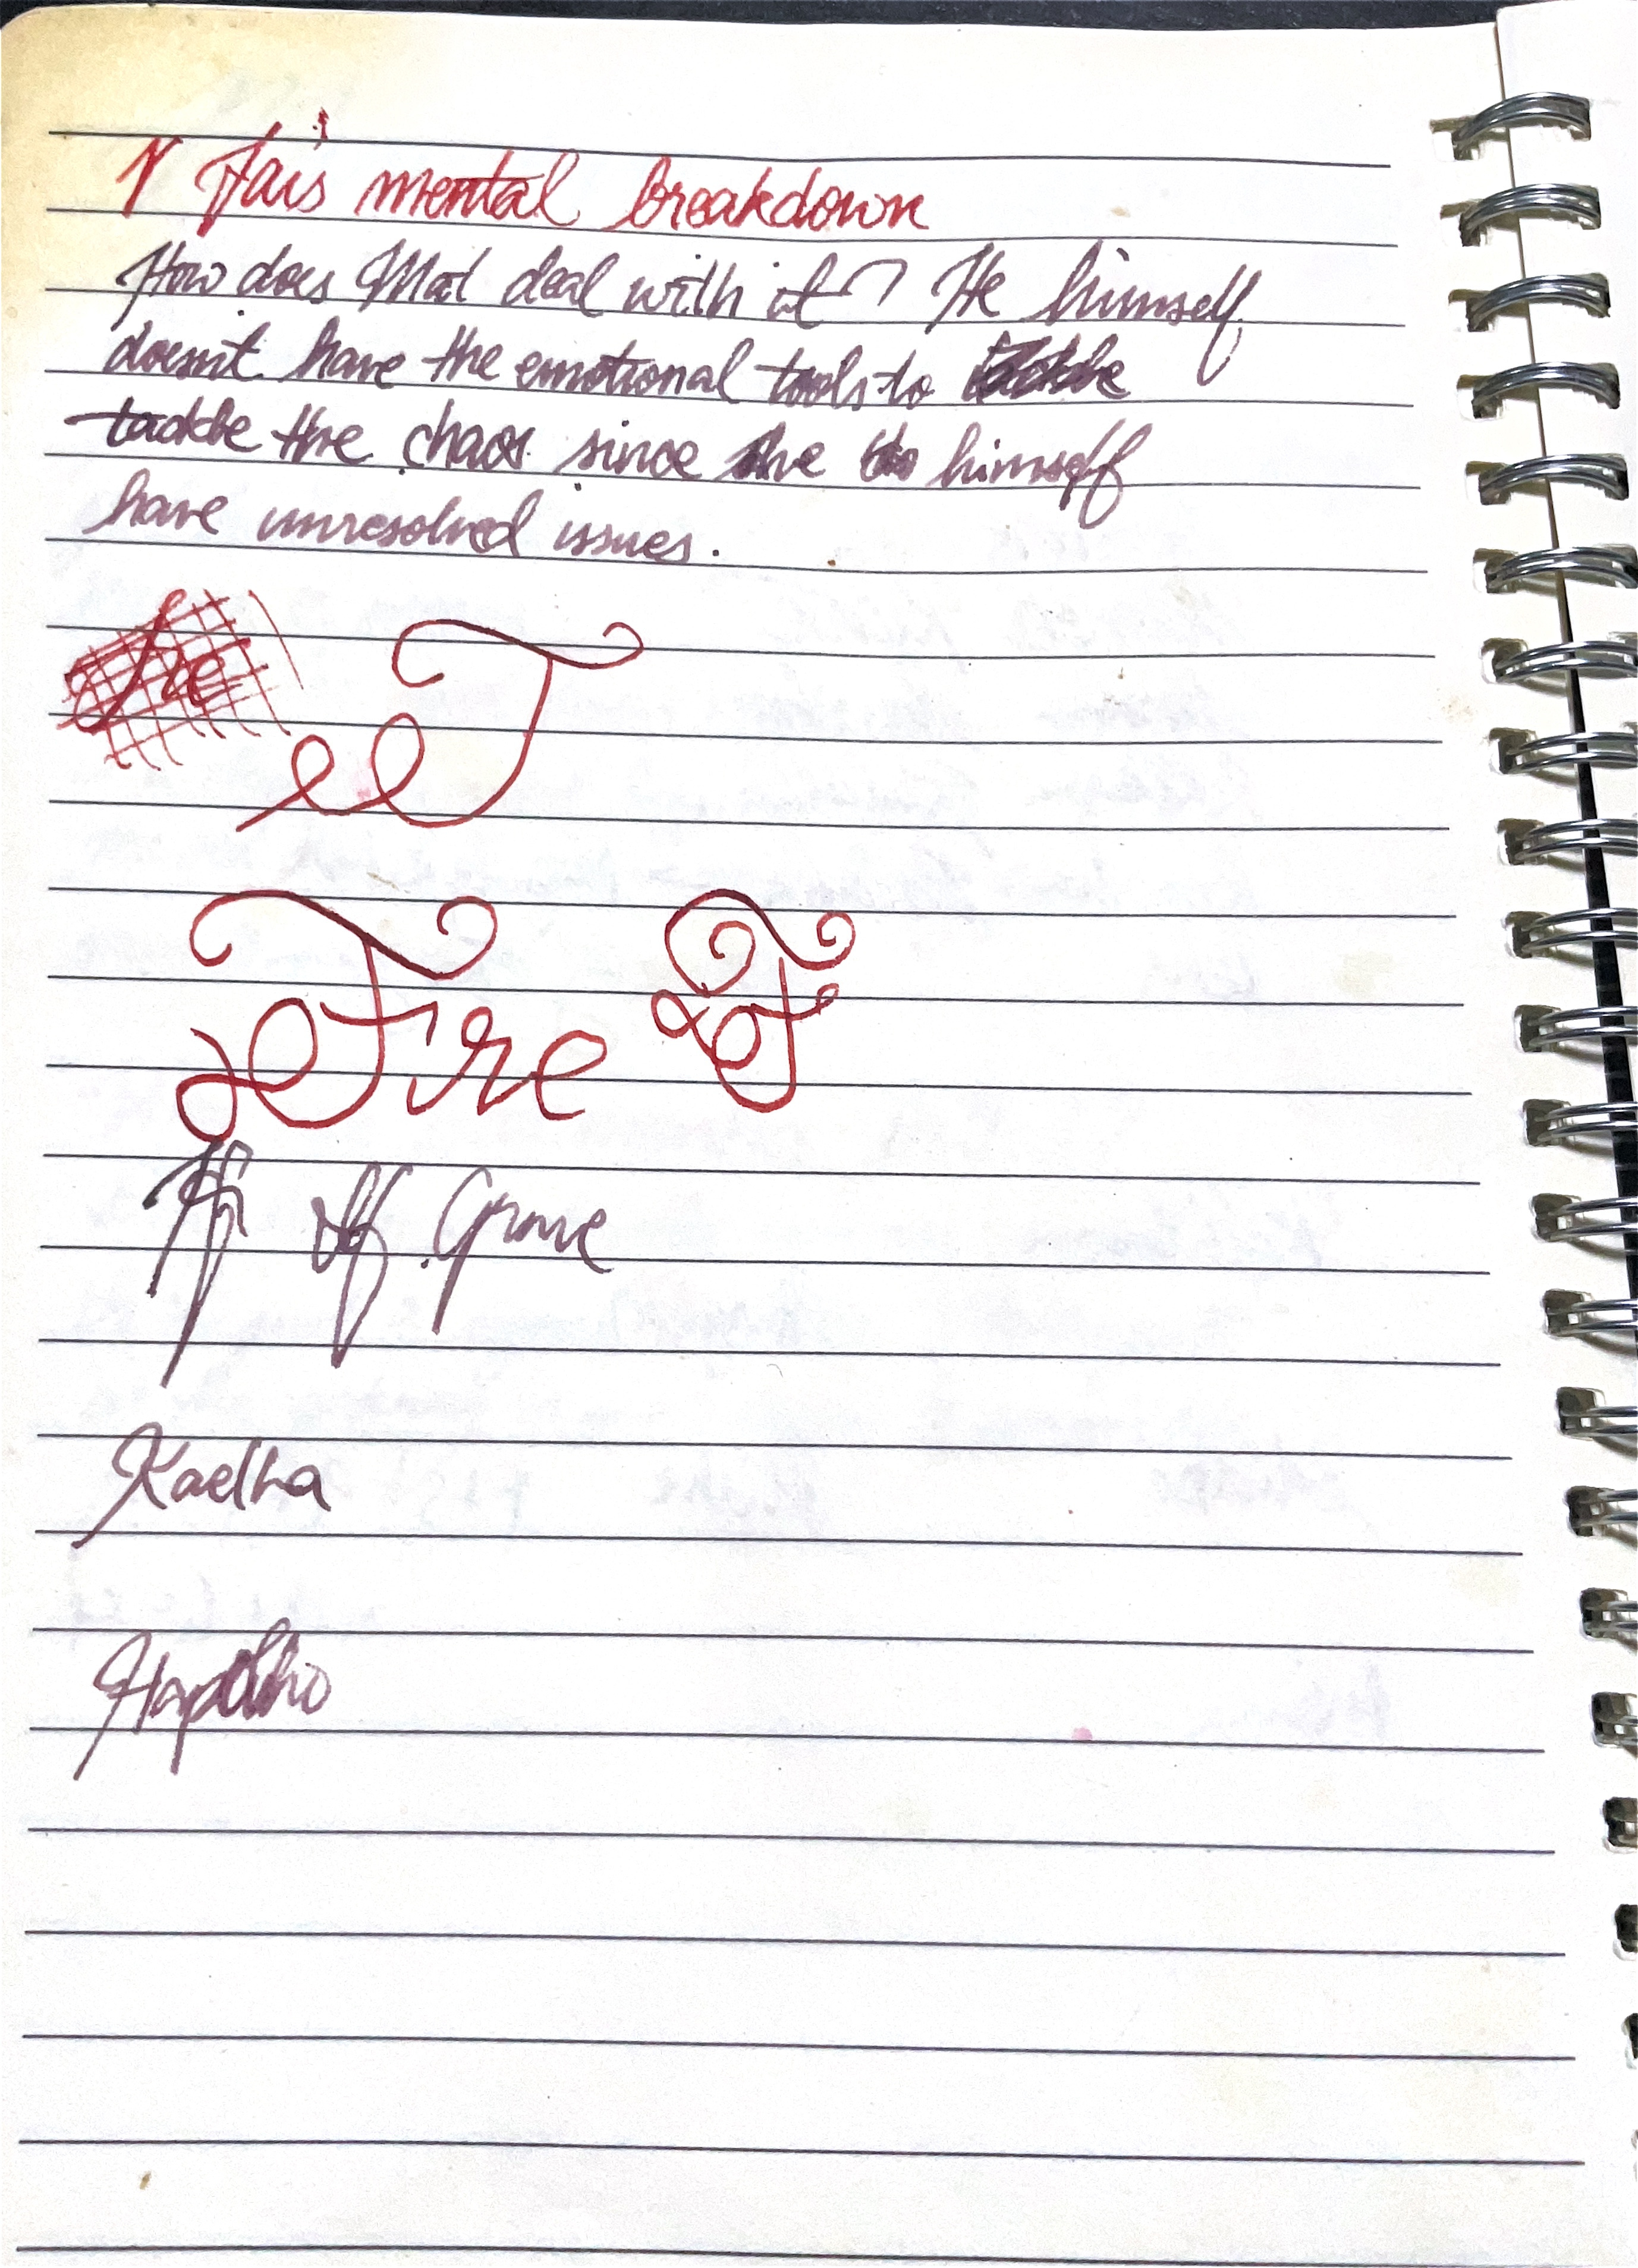 Fai's mental breakdown
How does Mat deal with it? He himself
doesn't have the emotional tools to
tackle the chaos since he himself
have unresolved issues.
T
Fire F
ff off Grove
Kaelha